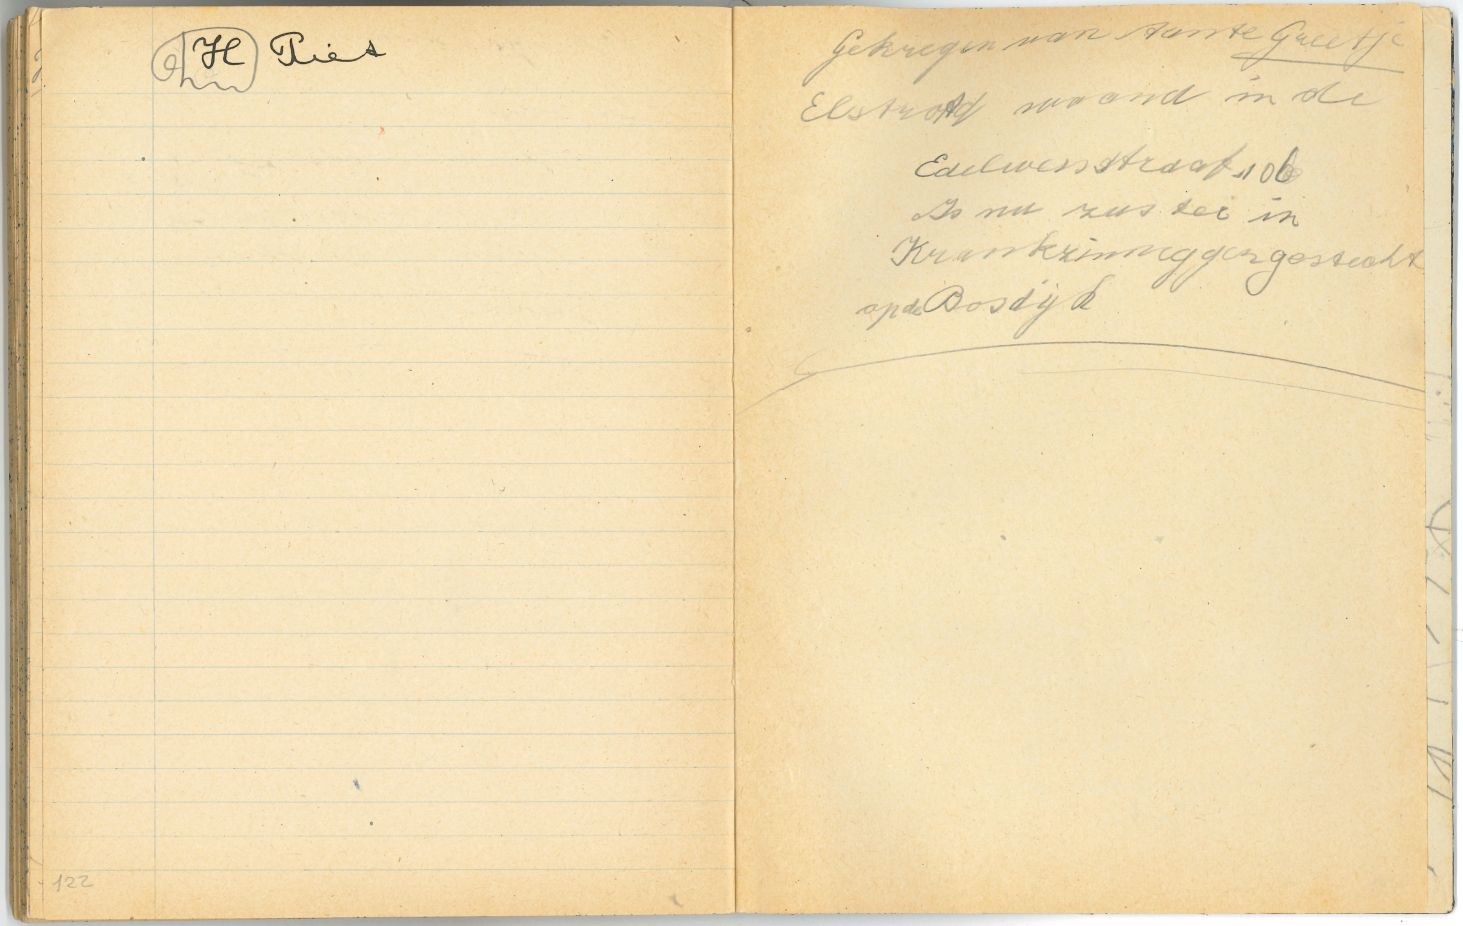 H Piet
122
Gekregen van tante Greetje
Elstrodt woond in de
Edelweisstraat 106
Is nu zuster in
Krankzinneggengesticht
op de Bosdijk